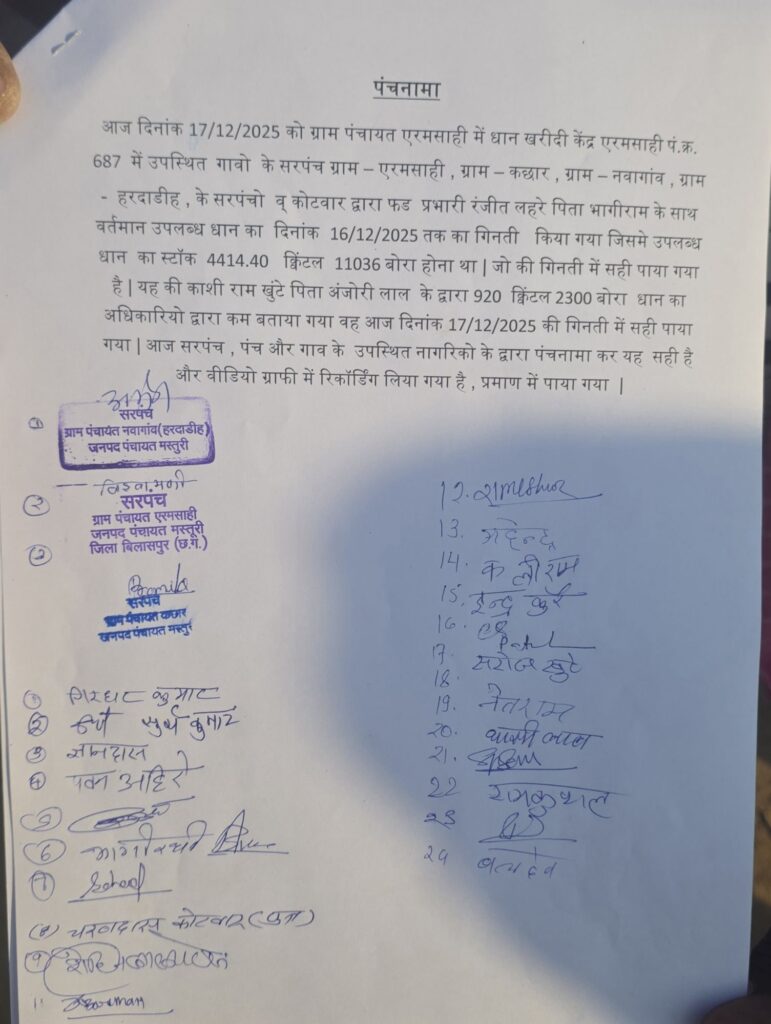 पंचनामा
आज दिनांक 17/12/2025 को ग्राम पंचायत एरमसाही में धान खरीदी केंद्र एरमसाही पं.क्र.
687 में उपस्थित गावो के सरपंच ग्राम – एरमसाही , ग्राम – कछार , ग्राम – नवागांव , ग्राम
- हरदाडीह , के सरपंचो व् कोटवार द्वारा फड प्रभारी रंजीत लहरे पिता भागीराम के साथ
वर्तमान उपलब्ध धान का दिनांक 16/12/2025 तक का गिनती किया गया जिसमे उपलब्ध
धान का स्टॉक 4414.40 क्विंटल 11036 बोरा होना था | जो की गिनती में सही पाया गया
है | यह की काशी राम खुंटे पिता अंजोरी लाल के द्वारा 920 क्विंटल 2300 बोरा धान का
अधिकारियो द्वारा कम बताया गया वह आज दिनांक 17/12/2025 की गिनती में सही पाया
गया | आज सरपंच , पंच और गाव के उपस्थित नागरिको के द्वारा पंचनामा कर यह सही है
और वीडियो ग्राफी में रिकॉर्डिंग लिया गया है , प्रमाण में पाया गया |
①
सरपंच
ग्राम पंचायत नवागांव(हरदाडीह)
जनपद पंचायत मस्तुरी
②
सरपंच
ग्राम पंचायत एरमसाही
जनपद पंचायत मस्तूरी
जिला बिलासपुर (छ.ग.)
सरपंच
ग्राम पंचायत कछार
जनपद पंचायत मस्तुरी
① गिरधर कुमार
② सुर्य कुमार
③ ज्ञानदास
④ अहिरे
⑤
⑥ भागीरथी
⑦
(8) चरनदास कोटवार
⑨
11
12. Rameshwar
13. महेन्द्र
14. कलीराम
15. इन्द्र कुर्रे
16.
17. Patel
18. सरोज खुटे
19. नेतराम
20. घासीलाल
21.
22 रामकुशल
23
24 बलदेव